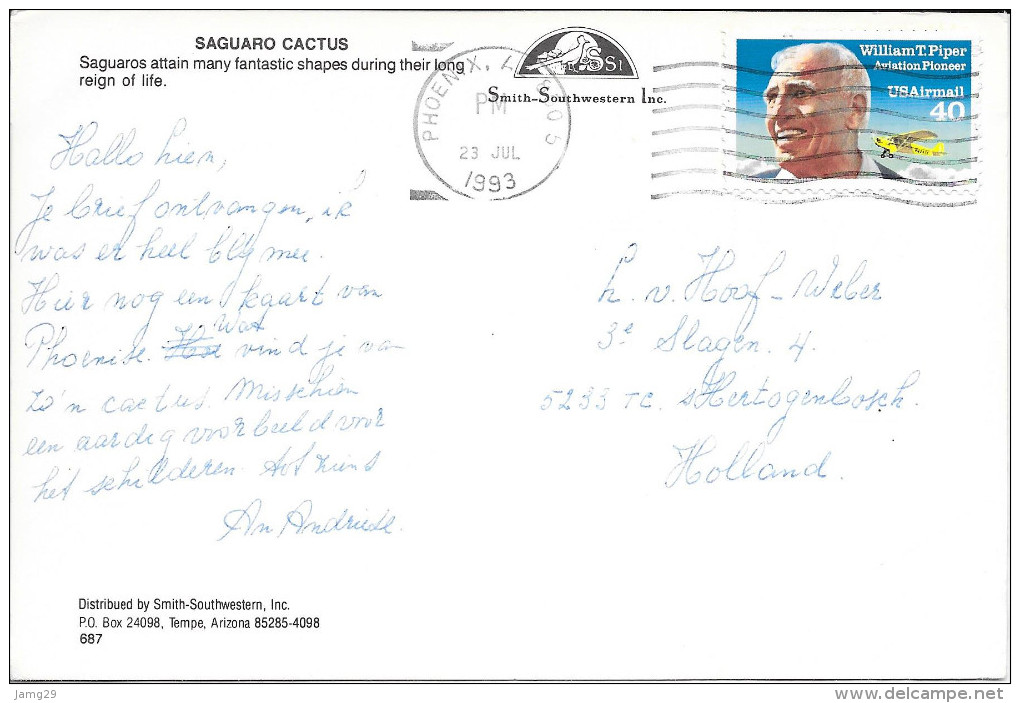 SAGUARO CACTUS
Saguaros attain many fantastic shapes during their long
reign of life.
PHOENIX, A
PM
23 JUL
1993
Smith-Southwestern Inc.
William T. Piper
Aviation Pioneer
USAirmail
40
Hallo hien,
Je brief ontvangen, ik
was er heel blij mee.
Hier nog een kaart van
Wat
vind je van
zo'n cactus. Misschien
een aardig voorbeeld voor
het schilderen. tot ziens
An
h. v. Hoof-Weber
3e Slagen. 4.
5233 TC. sHertogenbosch.
Holland.
Distribued by Smith-Southwestern, Inc.
P.O. Box 24098, Tempe, Arizona 85285-4098
687
Jamg29
www.delcampe.net